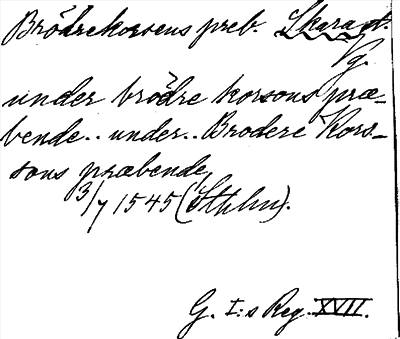 Brödrekorsens preb. Skara st.
Vg.
under brödre korsons præ-
bende.. under.. Brodere Kors-
sons præbende
3/7 1545 (Sthlm).
G. I:s Reg. XVII.